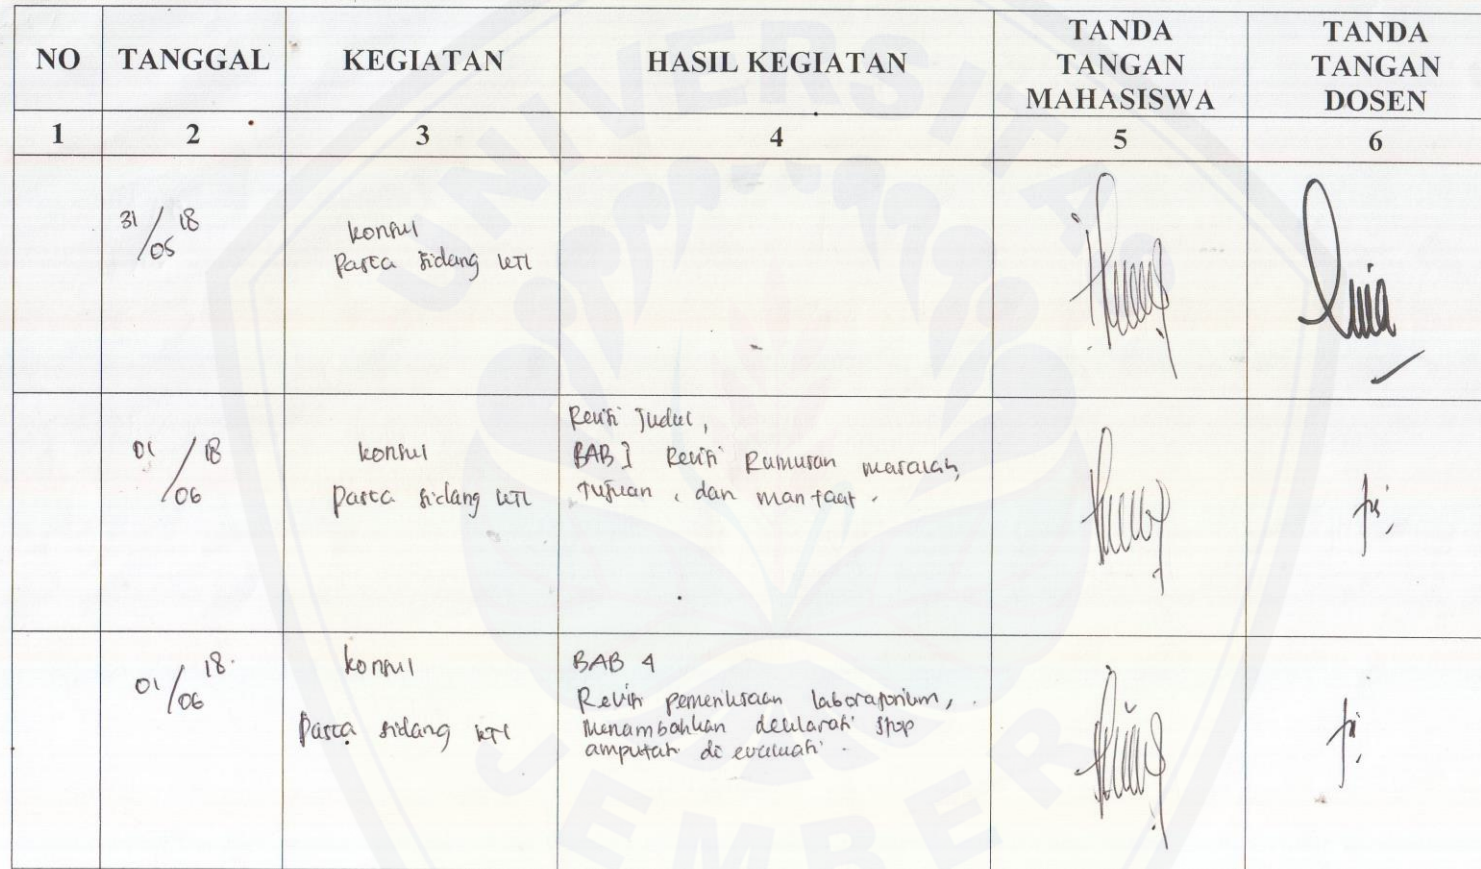 NO TANGGAL KEGIATAN HASIL KEGIATAN TANDA TANGAN MAHASISWA TANDA TANGAN DOSEN
1 2 3 4 5 6
31/05 18
konsul
Pasca sidang KTI
01/06 18
konsul
Pasca sidang KTI
Revisi Judul,
BAB I Revisi Rumusan masalah,
Tujuan, dan manfaat.
01/06 18.
konsul
Pasca sidang KTI
BAB 4
Revisi pemeriksaan laboratorium,
menambahkan deklarasi stop
amputasi di evaluasi.
UNIVERSITAS
JEMBER